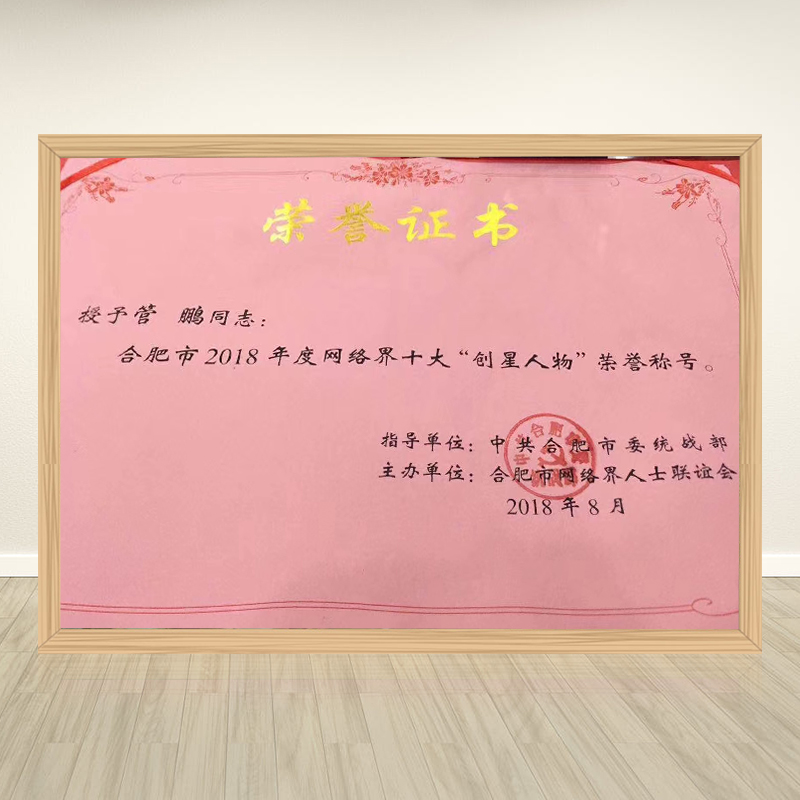 荣誉证书
授予管 鹏同志：
合肥市2018年度网络界十大“创星人物”荣誉称号。
指导单位：中共合肥市委统战部
主办单位：合肥市网络界人士联谊会
2018年8月
中共合肥